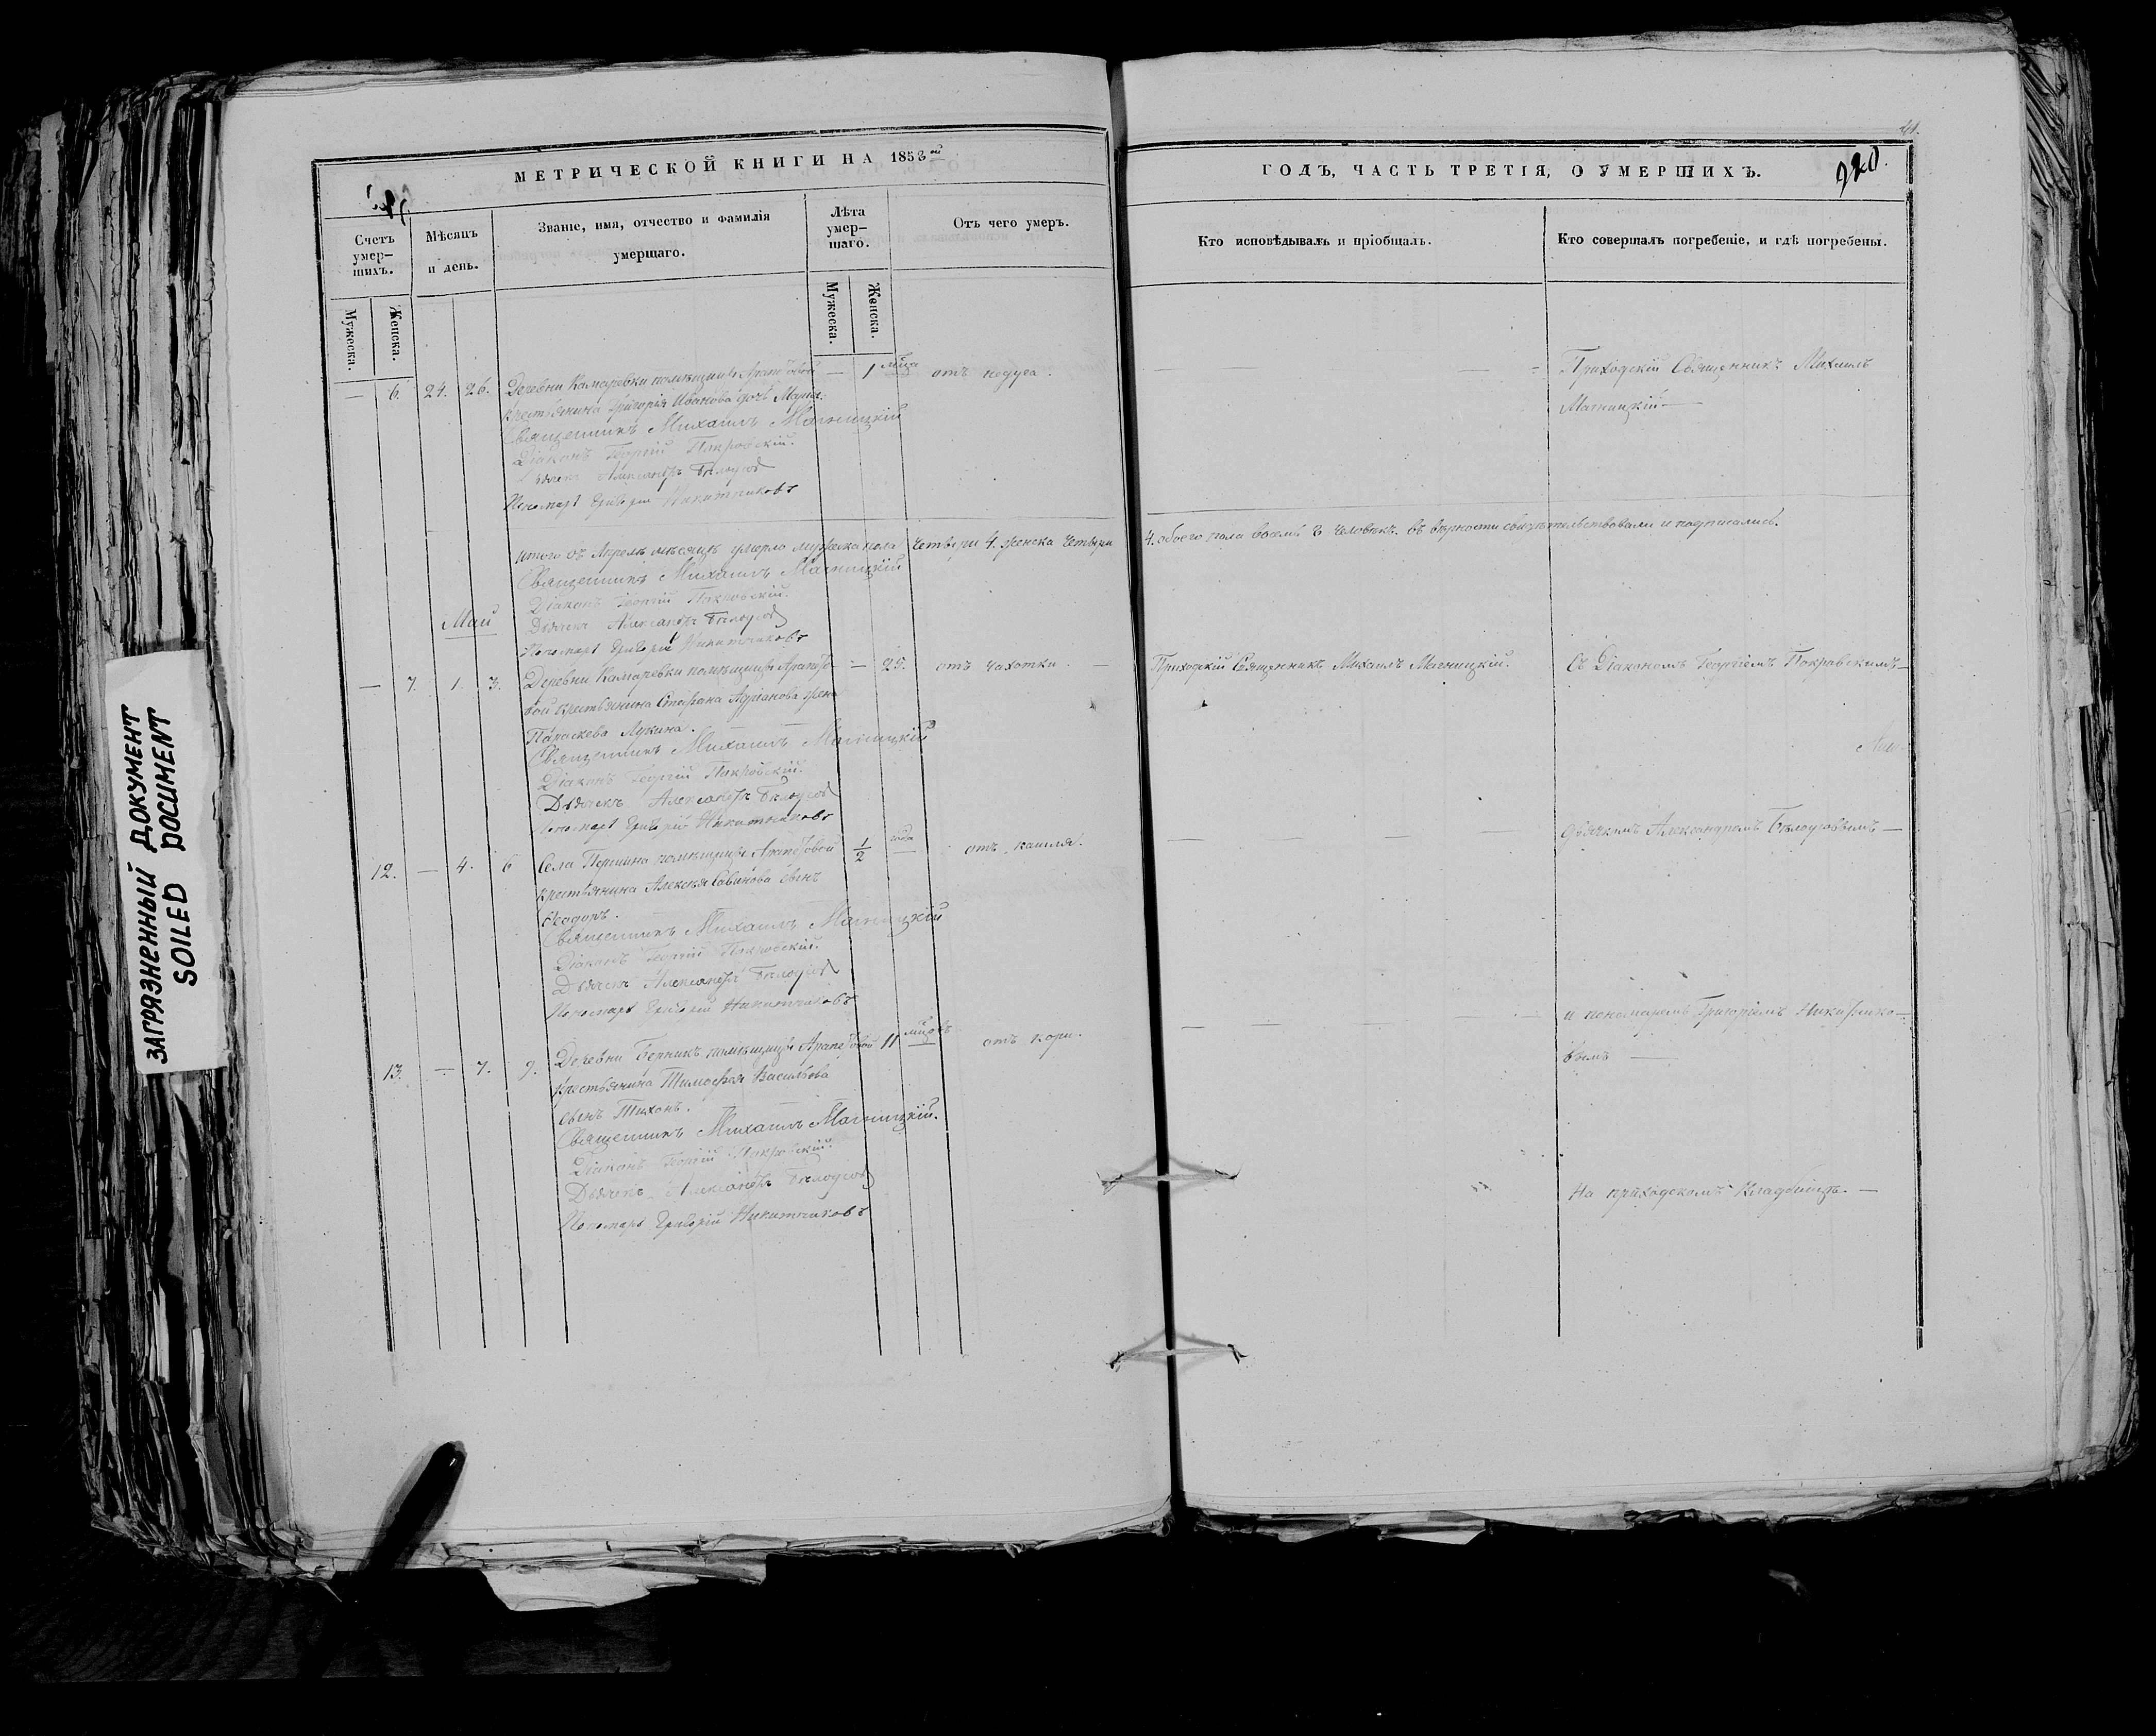 МЕТРИЧЕСКОЙ КНИГИ НА 1853ой
ГОДЪ, ЧАСТЬ ТРЕТІЯ, О УМЕРШИХЪ.
Счетъ умер-
шихъ.
Мѣсяцъ
и день.
Званіе, имя, отчество и фамилія
умершаго.
Лѣта
умер-
шаго.
Отъ чего умеръ.
Кто исповѣдывалъ и пріобщалъ.
Кто совершалъ погребеніе, и гдѣ погребены.
Мужеска.
Женска.
Мужеска.
Женска.
— 6. 24. 26. Деревни Камаревки помѣщицы Араповой — 1 отъ недуга.
крестьянина Григорія Иванова дочь Марія.
Священникъ Михаилъ Магницкій
Діаконъ Георгій Покровскій.
Дьячекъ Александръ Бѣлоусов
Пономарь Григорій Никитниковъ
Приходскій Священникъ Михаилъ
Магницкій —
итого въ Апрелѣ мѣсяцѣ умерло мужеска пола четыри 4. женска четыри 4. обоего пола восемь 8 человѣкъ. въ вѣрности свидѣтельствовали и подписались.
Священникъ Михаилъ Магницкій
Діаконъ Георгій Покровскій.
Май
Дьячекъ Александръ Бѣлоусов
Пономарь Григорій Никитниковъ
— 7. 1. 3. Деревни Камаревки помѣщицы Арапо- — 25. отъ чахотки. —
вой крестьянина Стефана Адрианова жена
Параскева Лукина.
Приходскій Священникъ Михаилъ Магницкій.
Съ Діакономъ Георгіемъ Покровскимъ —
Священникъ Михаилъ Магницкій
Діаконъ Георгій Покровскій.
Дьячекъ Александръ Бѣлоусов
Пономарь Григорій Никитниковъ
12. — 4. 6 Села Першина помѣщицы Араповой 1/2 года отъ кашля.
крестьянина Алексѣя Савинова сынъ
Ѳеодоръ.
дьячкомъ Александромъ Бѣлоусовымъ —
Священникъ Михаилъ Магницкій
Діаконъ Георгій Покровскій.
Дьячекъ Александръ Бѣлоусов
Пономарь Григорій Никитниковъ
13. — 7. 9. Деревни помѣщицы Араповой 11 отъ кори.
крестьянина Тимофея Васильева
сынъ Тихонъ.
и пономаремъ Григоріемъ Никитнико-
вымъ —
Священникъ Михаилъ Магницкій.
Діаконъ Георгій Покровскій.
Дьячекъ Александръ Бѣлоусов
Пономарь Григорій Никитниковъ
На приходскомъ кладбищѣ. —
ЗАГРЯЗНЕННЫЙ ДОКУМЕНТ
SOILED DOCUMENT